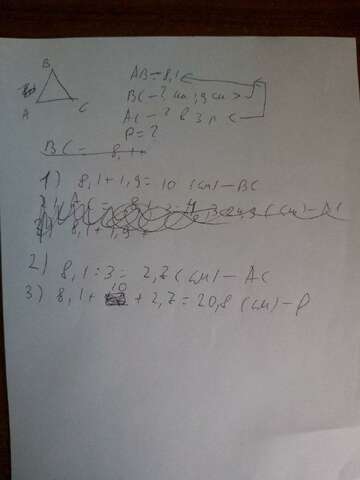 B
A
C
AB - 8,1
BC - ?, на 1,9 см >
AC - ? в 3 р <
P = ?
BC = 8,1 +
1) 8,1 + 1,9 = 10 (см) - BC
8,1 + 1,9 =
2) 8,1 : 3 = 2,7 (см) - AC
3) 8,1 + 10 + 2,7 = 20,8 (см) - P